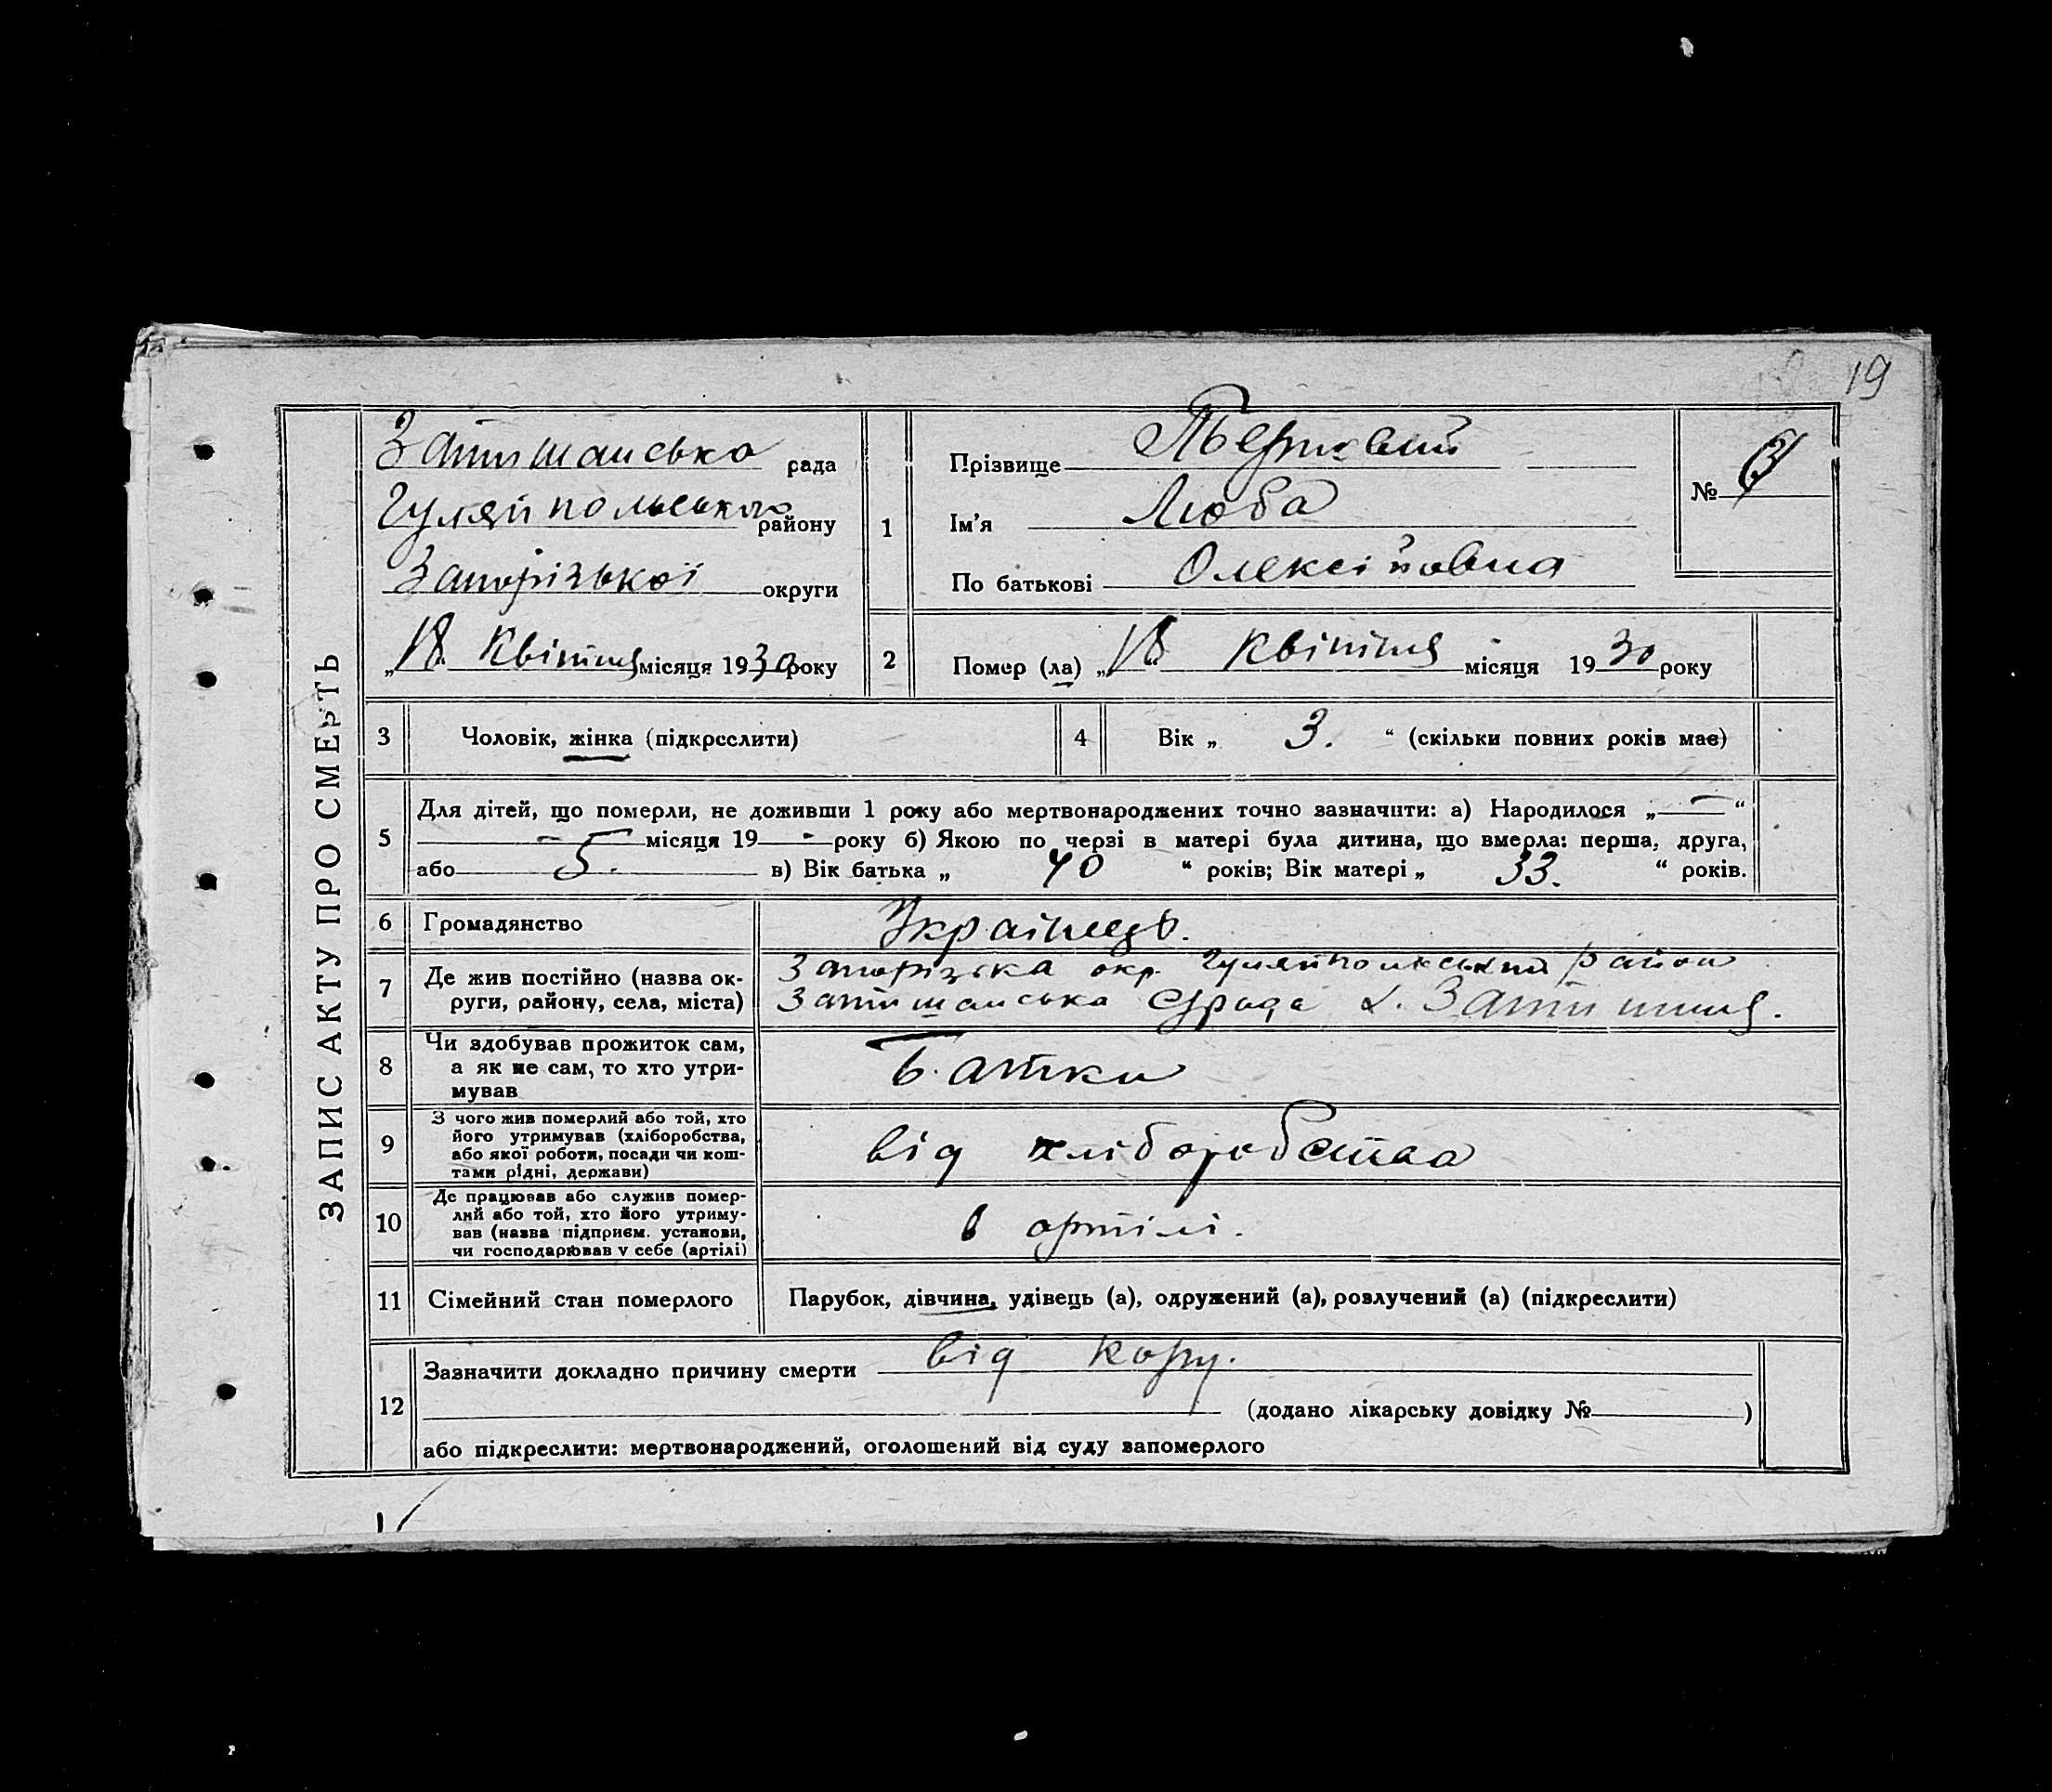 19
ЗАПИС АКТУ ПРО СМЕРТЬ
Затишанська рада
Гуляйпольського району
Запорізької округи
„18. Квітня місяця 1930 року
1
Прізвище
Ім'я Люба
По батькові Олексіївна
№
2
Помер (ла) „18. Квітня місяця 1930 року
3
Чоловік, жінка (підкреслити)
4
Вік „ 3. “ (скільки повних років має)
5
Для дітей, що померли, не доживши 1 року або мертвонароджених точно зазначити: а) Народилося „ — “
— місяця 19 - року б) Якою по черзі в матері була дитина, що вмерла: перша, друга,
або 5. в) Вік батька „ 40 “ років; Вік матері „ 33. “ років.
6
Громадянство Українець.
7
Де жив постійно (назва округи, району, села, міста)
Запорізька окр. Гуляйпольський район
Затишанська с/рада с. Затишшя.
8
Чи здобував прожиток сам,
а як не сам, то хто утри-
мував
Батки
9
З чого жив померлий або той, хто
його утримував (хліборобства,
або якої роботи, посади чи кош-
тами рідні, держави)
від хліборобства
10
Де працював або служив помер-
лий або той, хто його утриму-
вав (назва підприєм. установи,
чи господарював у себе (артілі)
в артілі.
11
Сімейний стан померлого
Парубок, дівчина, удівець (а), одружений (а), розлучений (а) (підкреслити)
12
Зазначити докладно причину смерти від кору.
(додано лікарську довідку № )
або підкреслити: мертвонароджений, оголошений від суду запомерлого